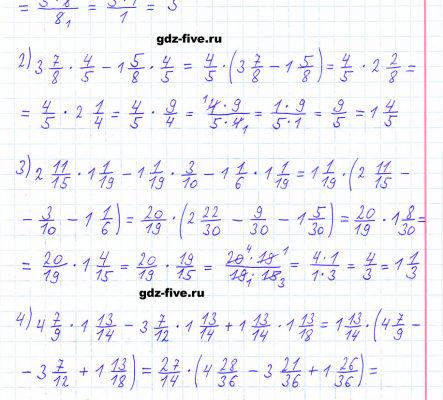 = 5·8/8₁ = 3·1/1 = 3
gdz-five.ru
2) 3 7/8 · 4/5 − 1 5/8 · 4/5 = 4/5 · (3 7/8 − 1 5/8) = 4/5 · 2 2/8 =
= 4/5 · 2 1/4 = 4/5 · 9/4 = ¹4·9/5·4₁ = 1·9/5·1 = 9/5 = 1 4/5
3) 2 11/15 · 1 1/19 − 1 1/19 · 3/10 − 1 1/6 · 1 1/19 = 1 1/19 · (2 11/15 −
− 3/10 − 1 1/6) = 20/19 · (2 22/30 − 9/30 − 1 5/30) = 20/19 · 1 8/30 =
= 20/19 · 1 4/15 = 20/19 · 19/15 = 20⁴·19¹/19₁·15₃ = 4·1/1·3 = 4/3 = 1 1/3
gdz-five.ru
4) 4 7/9 · 1 13/14 − 3 7/12 · 1 13/14 + 1 13/14 · 1 13/18 = 1 13/14 · (4 7/9 −
− 3 7/12 + 1 13/18) = 27/14 · (4 28/36 − 3 21/36 + 1 26/36) =